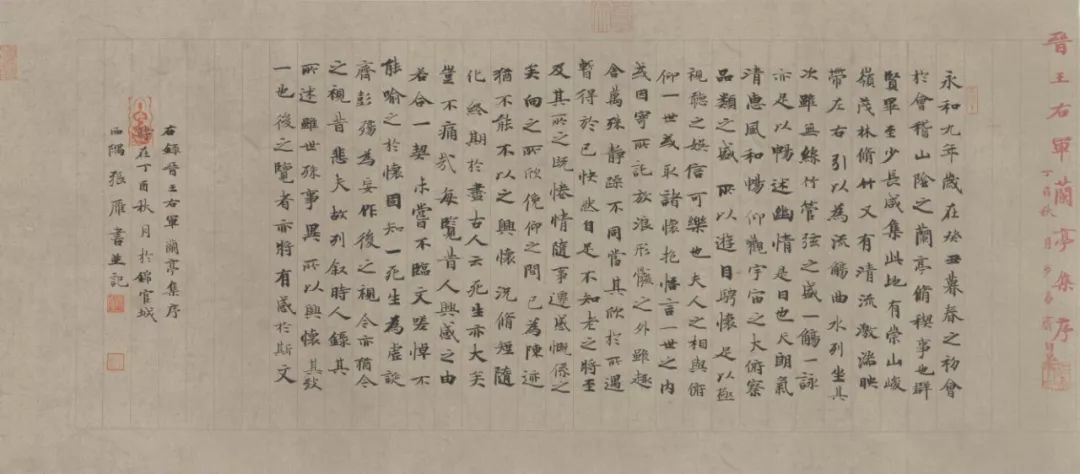 晉王右軍蘭亭集序
丁酉秋月
永和九年歲在癸丑暮春之初會
於會稽山陰之蘭亭脩稧事也群
賢畢至少長咸集此地有崇山峻
嶺茂林脩竹又有清流激湍映
帶左右引以為流觴曲水列坐其
次雖無絲竹管弦之盛一觴一詠
亦足以暢述幽情是日也天朗氣
清惠風和暢仰觀宇宙之大俯察
品類之盛所以遊目騁懷足以極
視聽之娛信可樂也夫人之相與俯
仰一世或取諸懷抱悟言一世之內
或因寄所託放浪形骸之外雖趣
舍萬殊靜躁不同當其欣於所遇
暫得於己快然自是不知老之將至
及其所之既惓情隨事遷感慨係之
矣向之所欣俛仰之間已為陳迹
猶不能不以之興懷況脩短隨
化終期於盡古人云死生亦大矣
豈不痛哉每覽昔人興感之由
若合一契未嘗不臨文嗟悼不
能喻之於懷固知一死生為虛誕
齊彭殤為妄作後之視今亦猶今
之視昔悲夫故列叙時人錄其
所述雖世殊事異所以興懷其致
一也後之覽者亦將有感於斯文
右錄晉王右軍蘭亭集序
時在丁酉秋月於錦官城
西隅張雁書並記